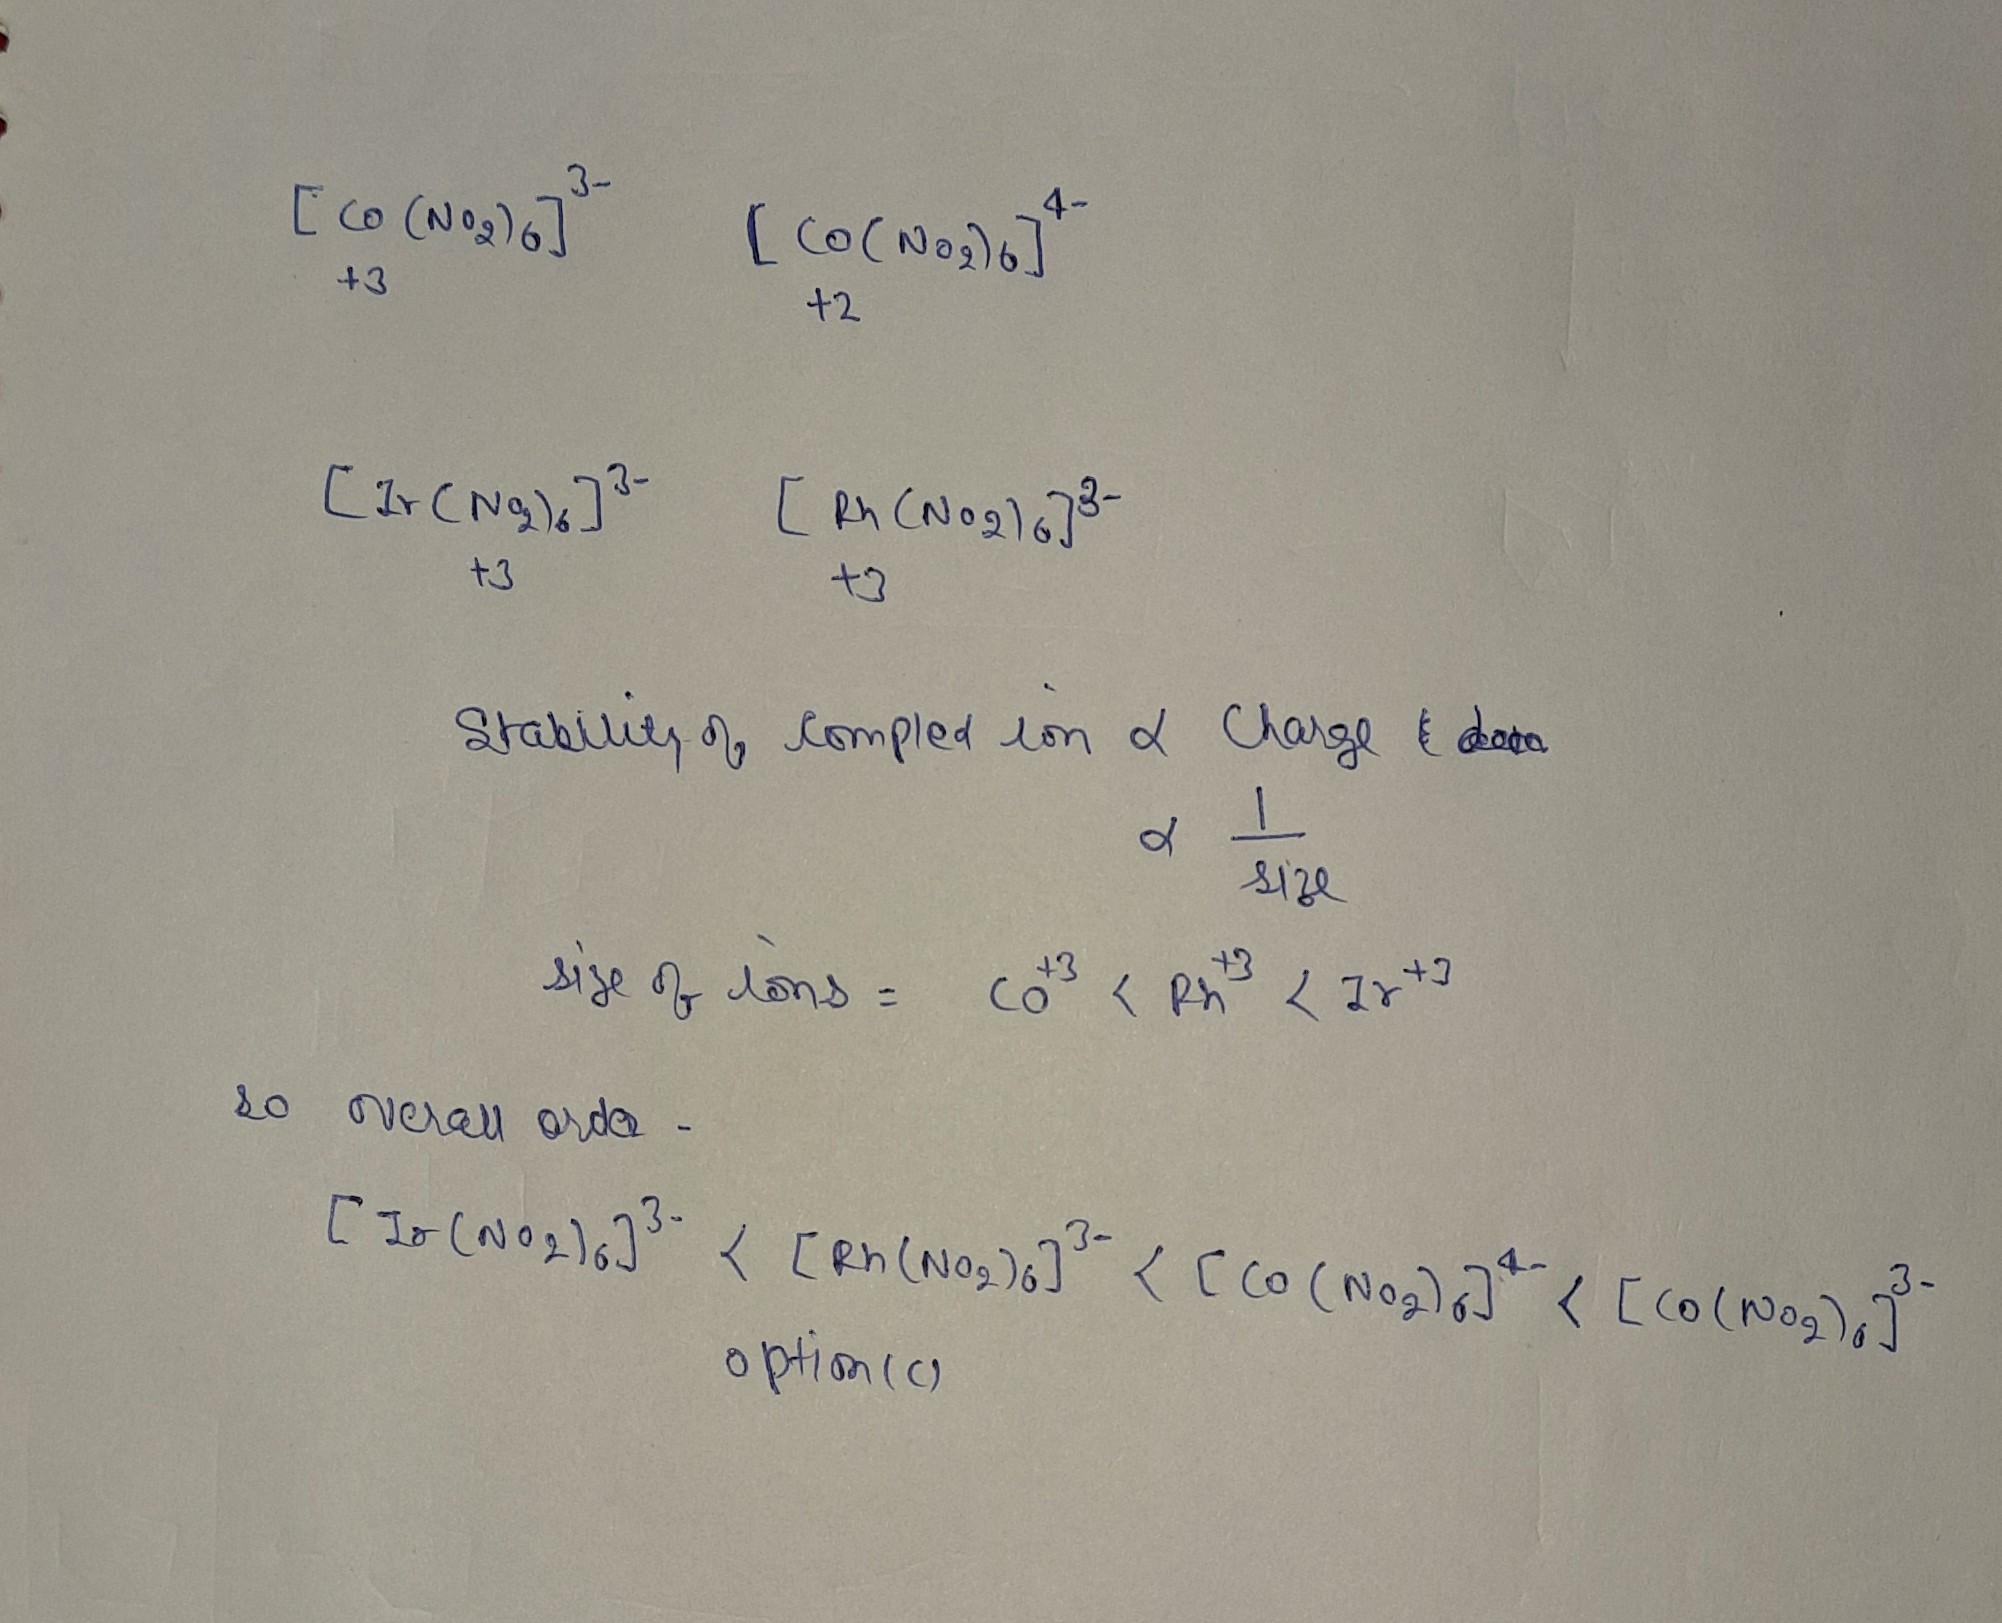 [Co(NO2)6]3- [Co(NO2)6]4-
+3 +2
[Ir(NO2)6]3- [Rh(NO2)6]3-
+3 +3
Stability of complex ion α Charge &
α 1/size
size of ions = Co+3 < Rh+3 < Ir+3
so overall order -
[Ir(NO2)6]3- < [Rh(NO2)6]3- < [Co(NO2)6]4- < [Co(NO2)6]3-
option (c)